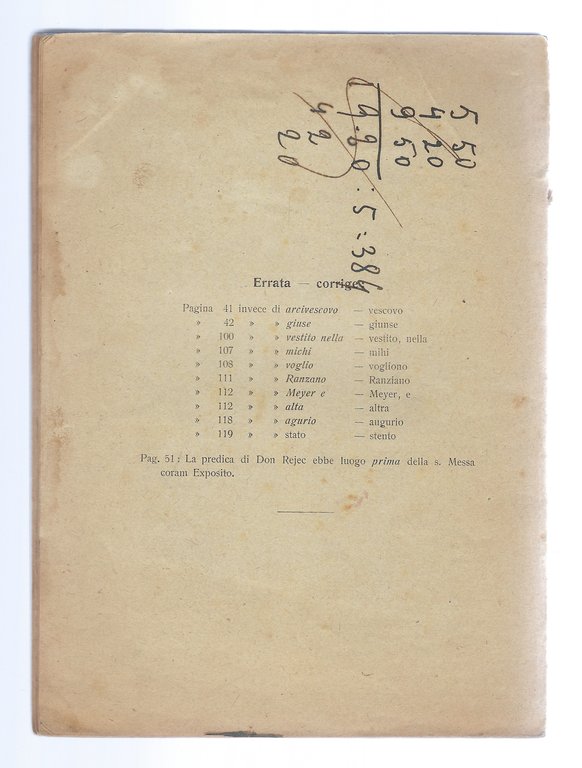 5 50
4 20
9 50
19.20 : 5 = 384
42
20
Errata — corrige
Pagina 41 invece di arcivescovo — vescovo
» 42 » » giuse — giunse
» 100 » » vestito nella — vestito, nella
» 107 » » michi — mihi
» 108 » » voglio — vogliono
» 111 » » Ranzano — Ranziano
» 112 » » Meyer e — Meyer, e
» 112 » » alta — altra
» 118 » » agurio — augurio
» 119 » » stato — stento
Pag. 51 : La predica di Don Rejec ebbe luogo prima della s. Messa
coram Exposito.